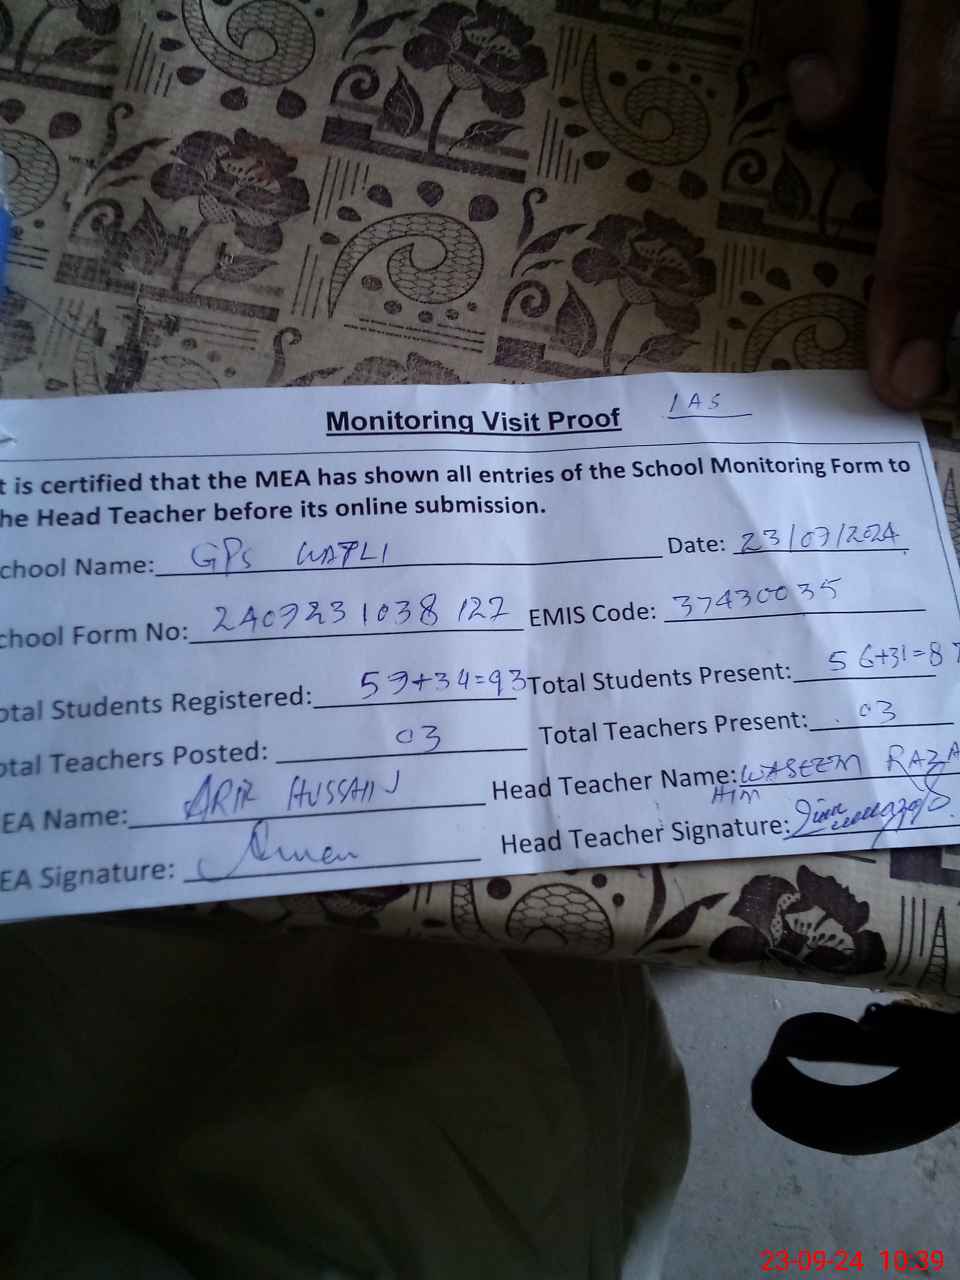 Monitoring Visit Proof 1AS
t is certified that the MEA has shown all entries of the School Monitoring Form to
he Head Teacher before its online submission.
chool Name: GPS WATLI Date: 23/07/2024
chool Form No: 2407231038127 EMIS Code: 37430035
otal Students Registered: 59+34=93 Total Students Present: 56+31=87
otal Teachers Posted: 03 Total Teachers Present: 03
EA Name: HUSSAIN Head Teacher Name: WASEEM RAZA
EA Signature: Head Teacher Signature:
23-09-24 10:39